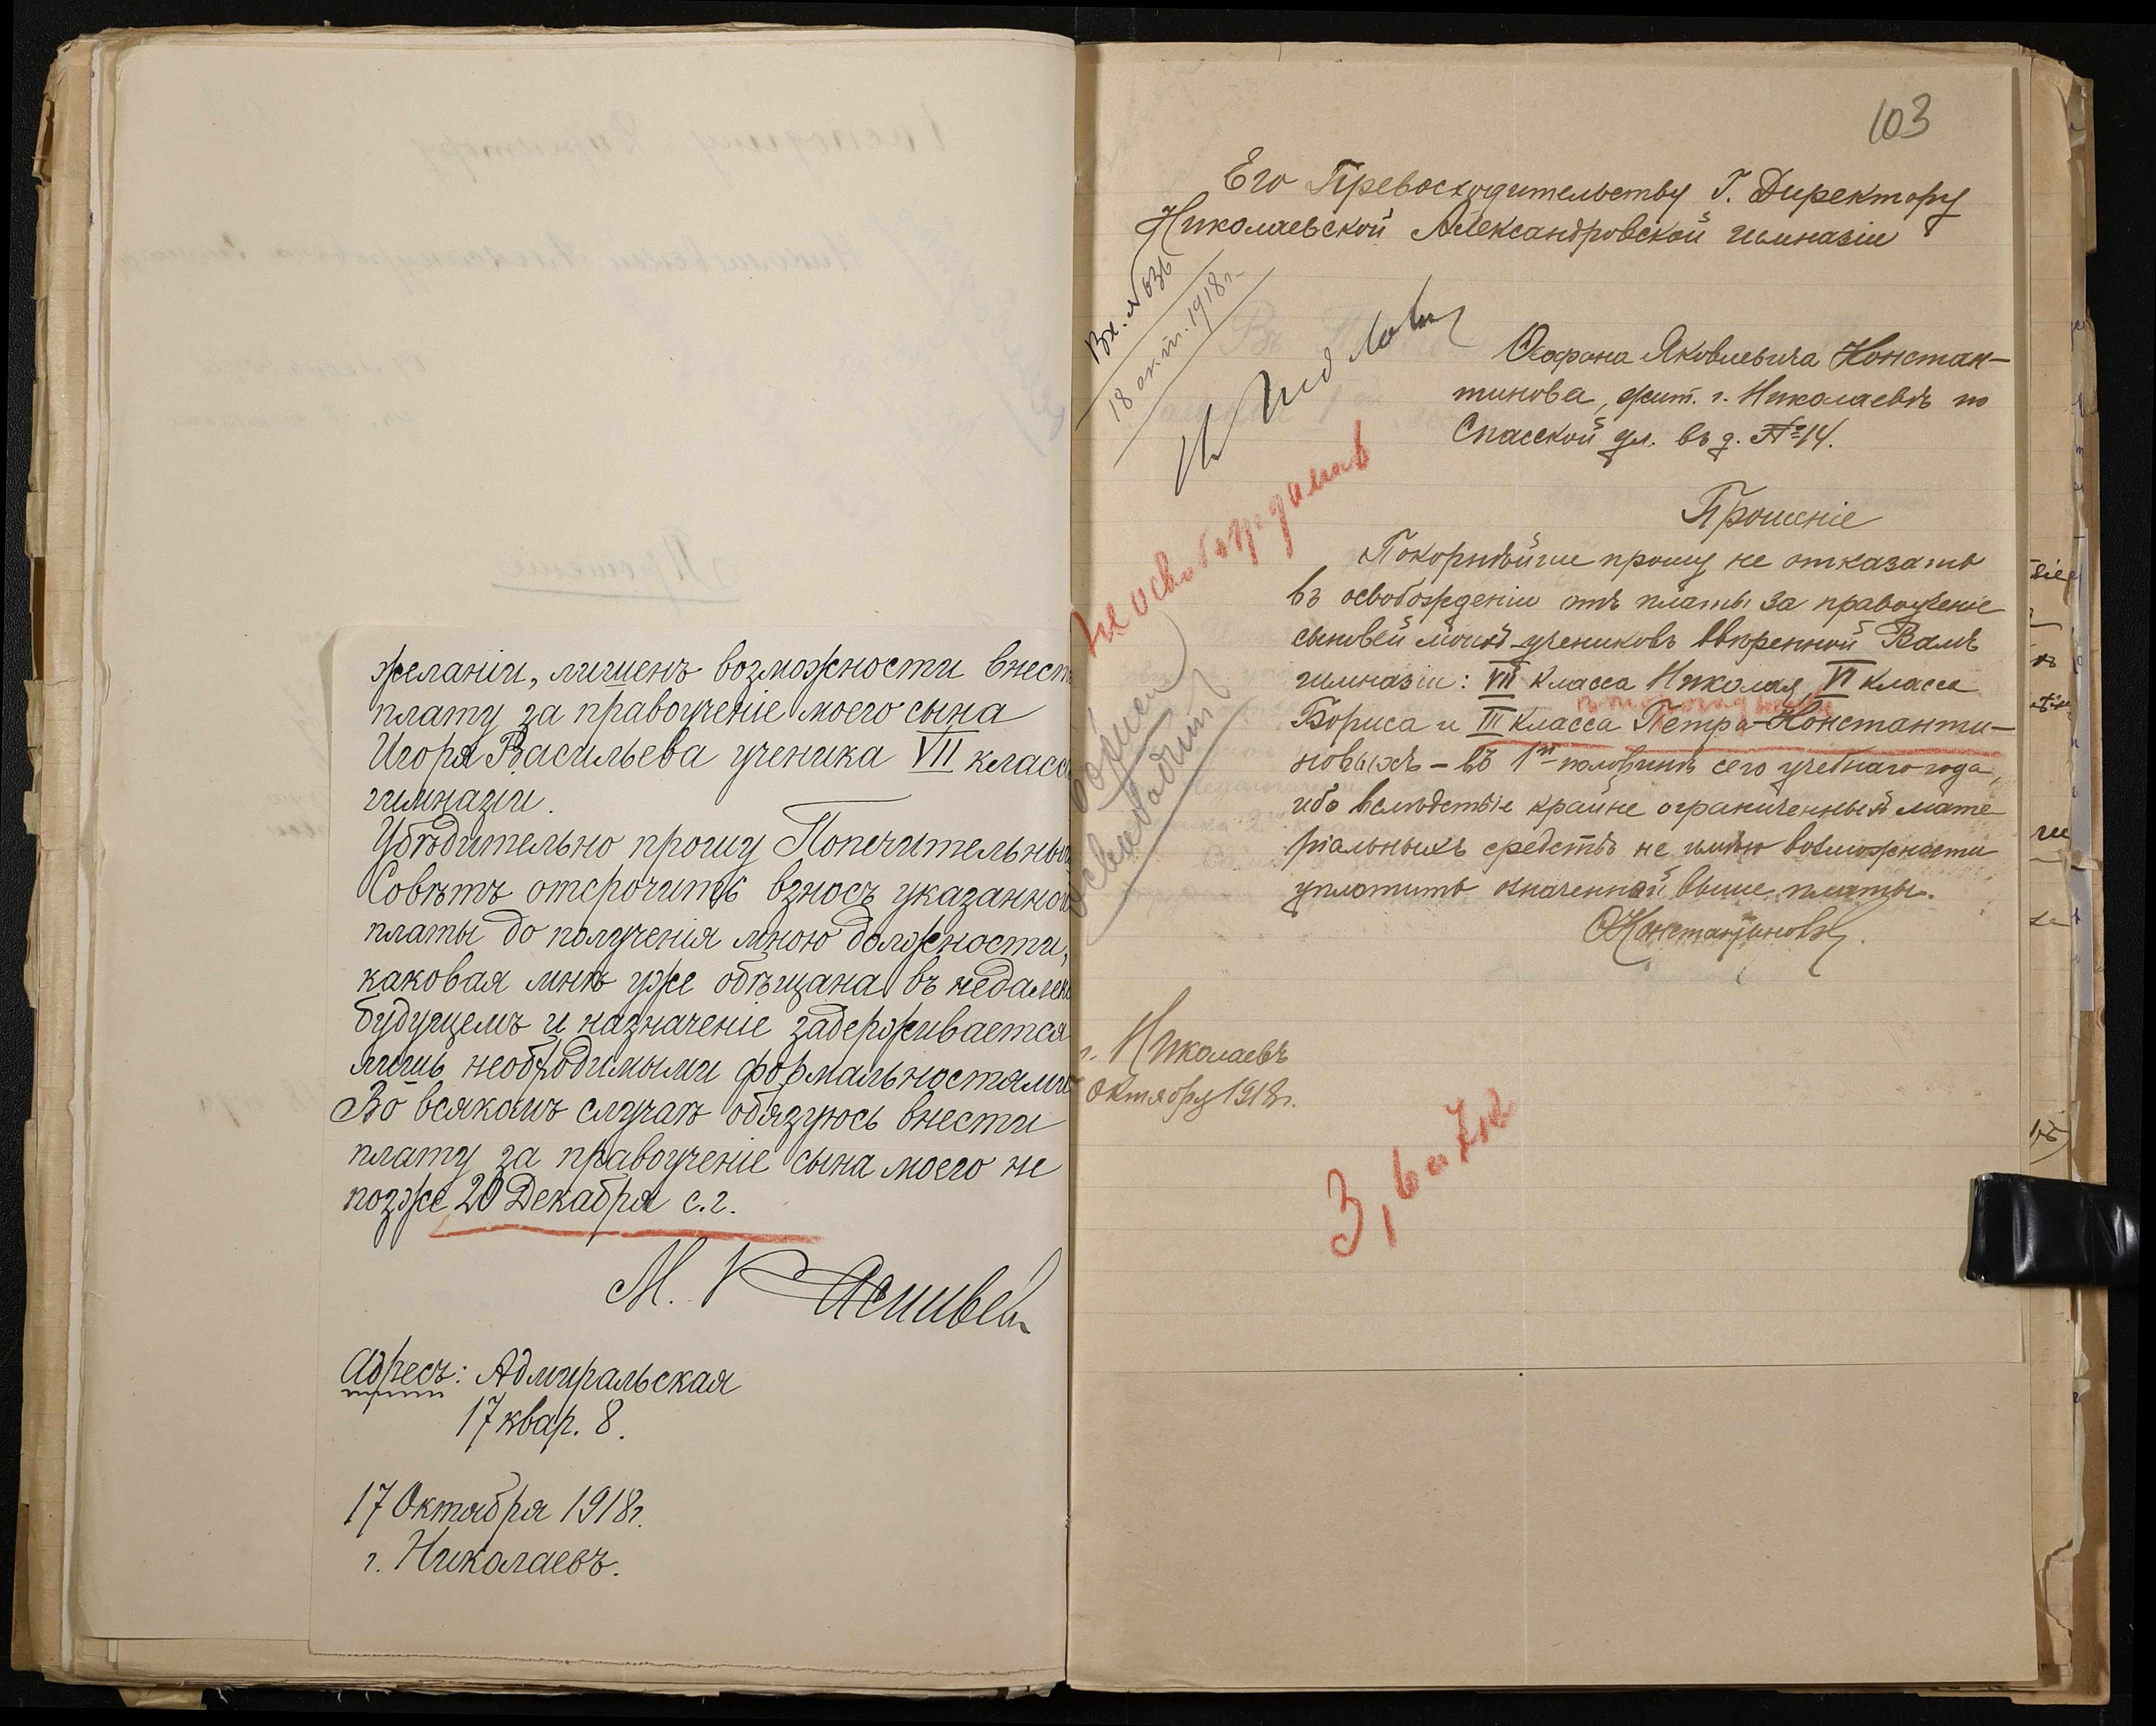 желанiи, лишенъ возможности внест
плату за правоученiе моего сына
Игоря Васильева ученика VII класса
гимназiи.
Убѣдительно прошу Попечительный
Совѣтъ отсрочить взносъ указанной
платы до полученiя мною должности,
каковая мнѣ уже обѣщана въ недалек
будущемъ и назначенiе задерживается
лишь необходимыми формальностями
Во всякомъ случаѣ обязуюсь внести
плату за правоученiе сына моего не
позже 20 Декабря с.г.
М. Васильев
Адресъ: Адмиральская
17 квар. 8.
17 Октября 1918 г.
г. Николаевъ.
103
Его Превосходительству Г. Директору
Николаевской Александровской гимназiи
Вх. № 636
18 окт. 1918 г.
Иосафона Яковлевича Констан-
тинова, жит. г. Николаевъ по
Спасской ул. въ д. № 14.
Прошенiе
Покорнѣйше прошу не отказать
въ освобожденiи отъ платы за правоученiе
сыновей моихъ - учениковъ ввѣренной Вамъ
гимназiи: VII класса Николая, VI класса
Бориса и III класса Петра - Константи-
новыхъ - въ 1й половинѣ сего учебнаго года,
ибо вслѣдствiе крайне ограниченныхъ мате-
рiальныхъ средствъ не имѣю возможности
уплотить означенной выше платы.
ОКонстантиновъ.
не освобождать
Бориса
освободить
г. Николаевъ
Октября 1918 г.